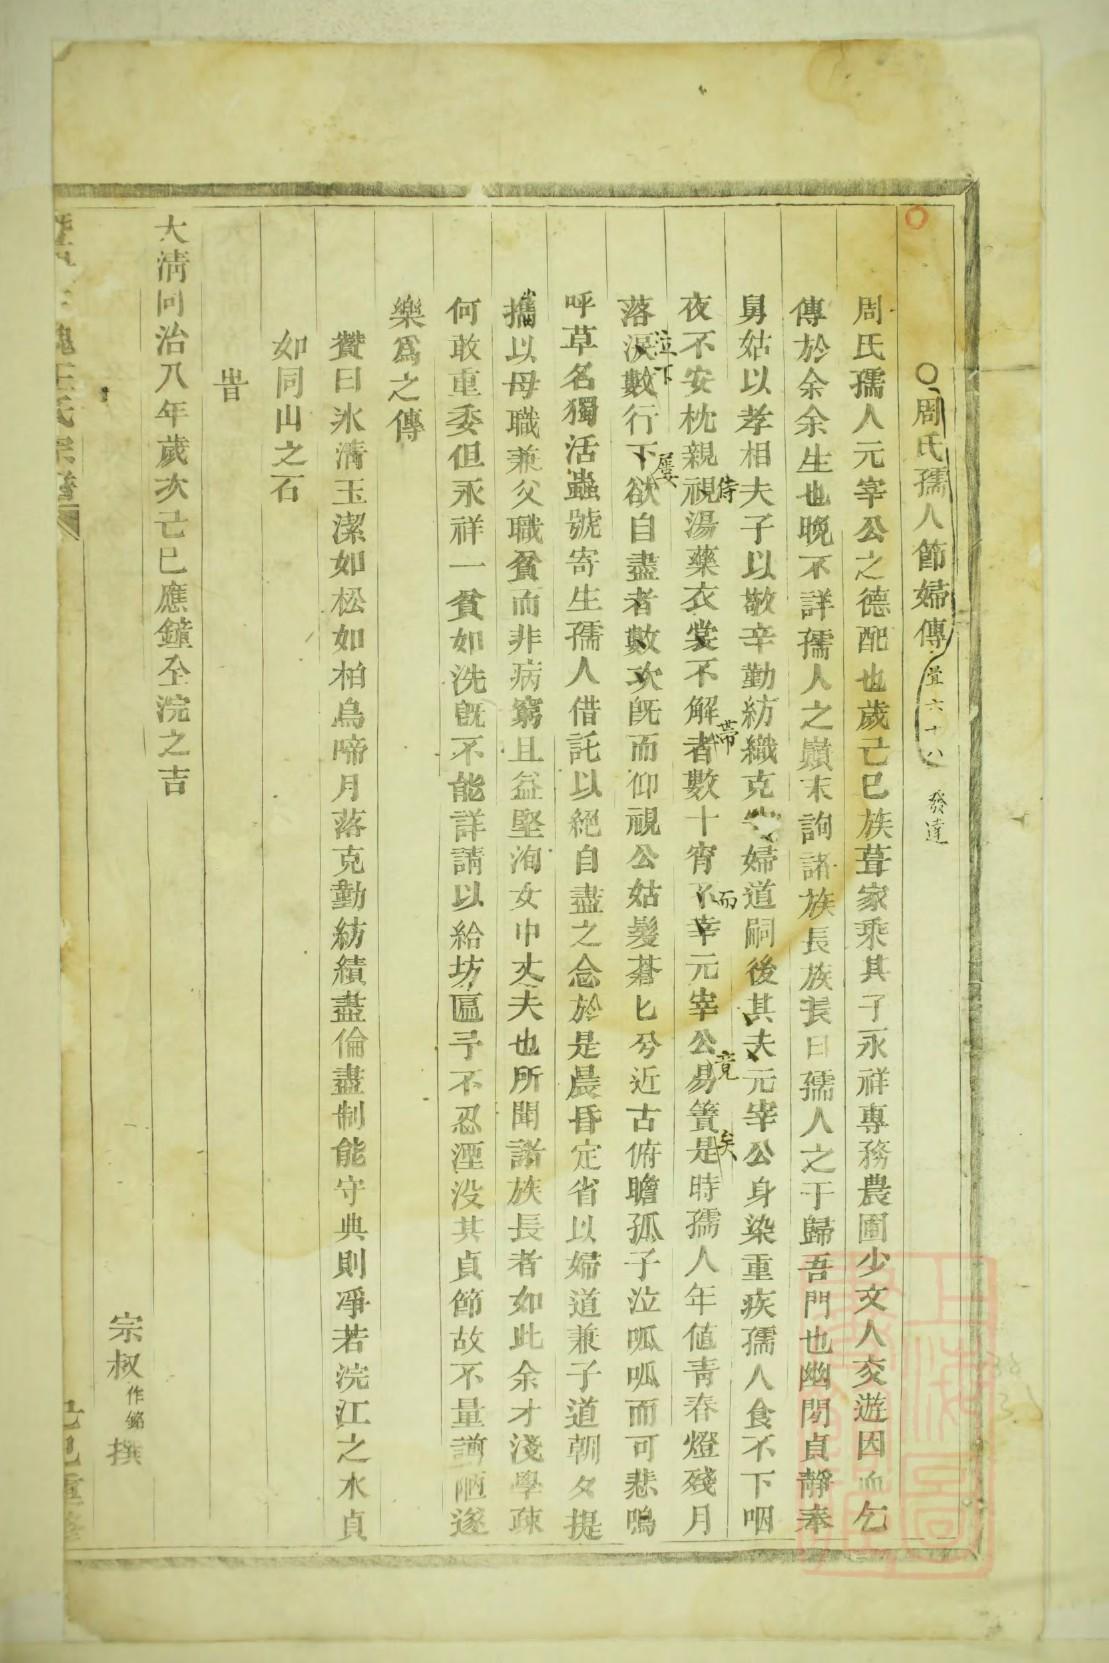 周氏孺人節婦傳 萓六十八 發達
周氏孺人元宰公之德配也歲己巳族葺家乘其子永祥專務農圃少文人交遊因而乞
傳於余余生也晚不詳孺人之巔末詢諸族長族長曰孺人之于歸吾門也幽閒貞靜奉
舅姑以孝相夫子以敬辛勤紡織克 婦道嗣後其夫元宰公身染重疾孺人食不下咽
夜不安枕親視湯藥衣裳不解者數十宵不幸元宰公易簀是時孺人年値青春燈殘月
侍 帶 而 竟 矣
落淚數行下欲自盡者數次旣而仰視公姑髮蒼匕兮近古俯瞻孤子泣呱呱而可悲鳴
泣下 屢
呼草名獨活蟲號寄生孺人借託以絕自盡之念於是晨昏定省以婦道兼子道朝夕提
攜以母職兼父職貧而非病窮且益堅洵女中丈夫也所聞諸族長者如此余才淺學疎
何敢重委但永祥一貧如洗旣不能詳請以給坊區予不忍湮没其貞節故不量謭陋遂
樂爲之傳
贊曰氷清玉潔如松如柏烏啼月落克勤紡績盡倫盡制能守典則凈若浣江之水貞
如同山之石
旹
大淸同治八年歲次己巳應鐘全浣之吉
宗叔作鉊撰
王氏宗譜
己巳重修